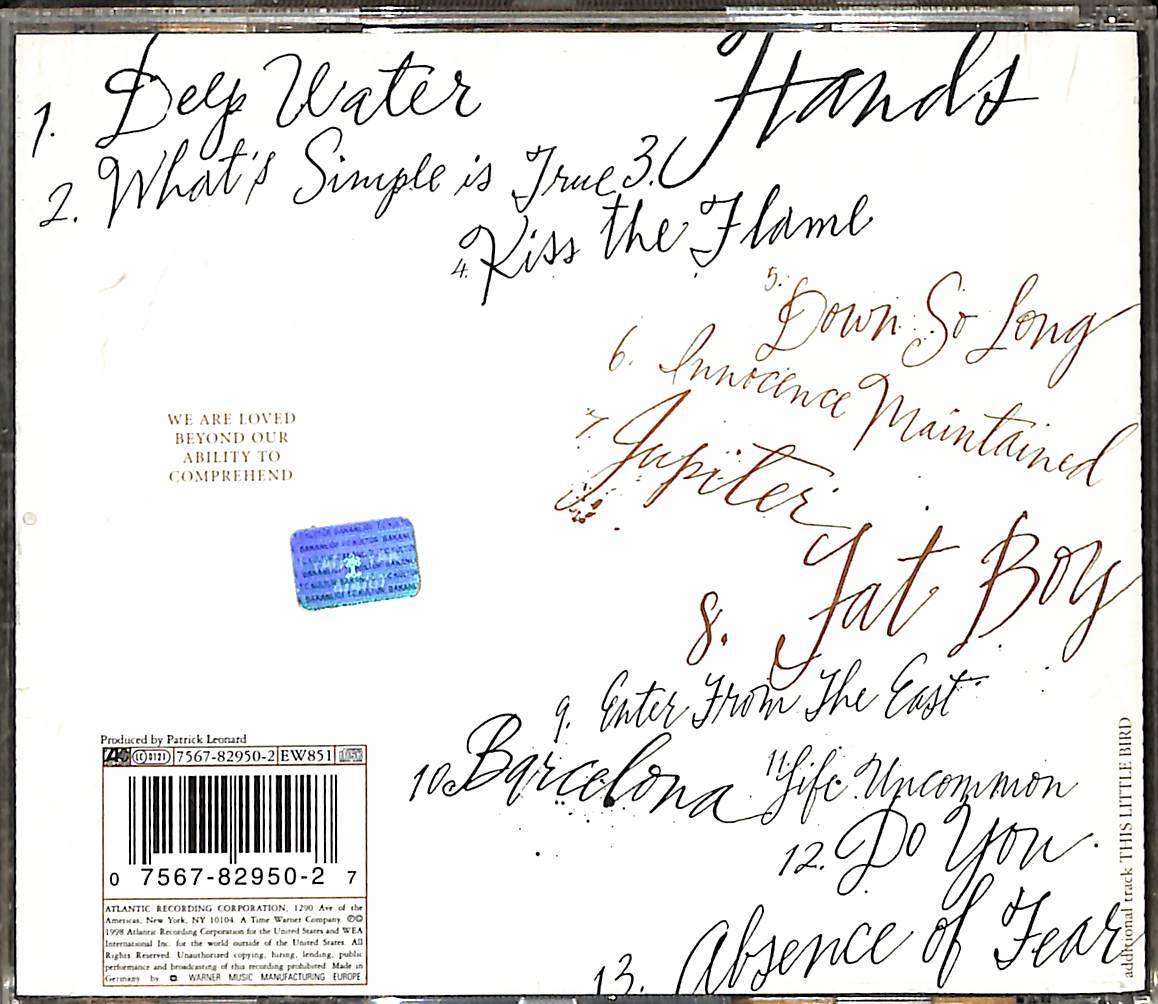 1. Deep Water
2. What's Simple is True
3. Hands
4. Kiss the Flame
5. Down So Long
6. Innocence Maintained
7. Jupiter
8. Fat Boy
9. Enter From The East
10. Barcelona
11. Life Uncommon
12. Do You
13. Absence of Fear
additional track THIS LITTLE BIRD
WE ARE LOVED
BEYOND OUR
ABILITY TO
COMPREHEND
T.C. KÜLTÜR BAKANLIĞI
Produced by Patrick Leonard
LC 0121 7567-82950-2 EW851
0 7567-82950-2 7
ATLANTIC RECORDING CORPORATION, 1290 Ave of the
Americas, New York, NY 10104 A Time Warner Company ℗©
1998 Atlantic Recording Corporation for the United States and WEA
International Inc. for the world outside of the United States. All
Rights Reserved. Unauthorized copying, hiring, lending, public
performance and broadcasting of this recording prohibited. Made in
Germany by WARNER MUSIC MANUFACTURING EUROPE